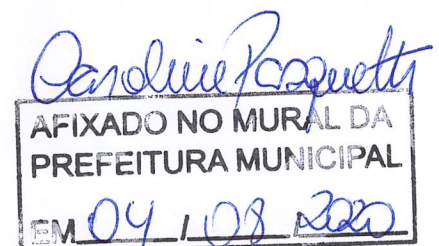 Caroline Pasqualetti
AFIXADO NO MURAL DA
PREFEITURA MUNICIPAL
EM 04 / 08 / 2020